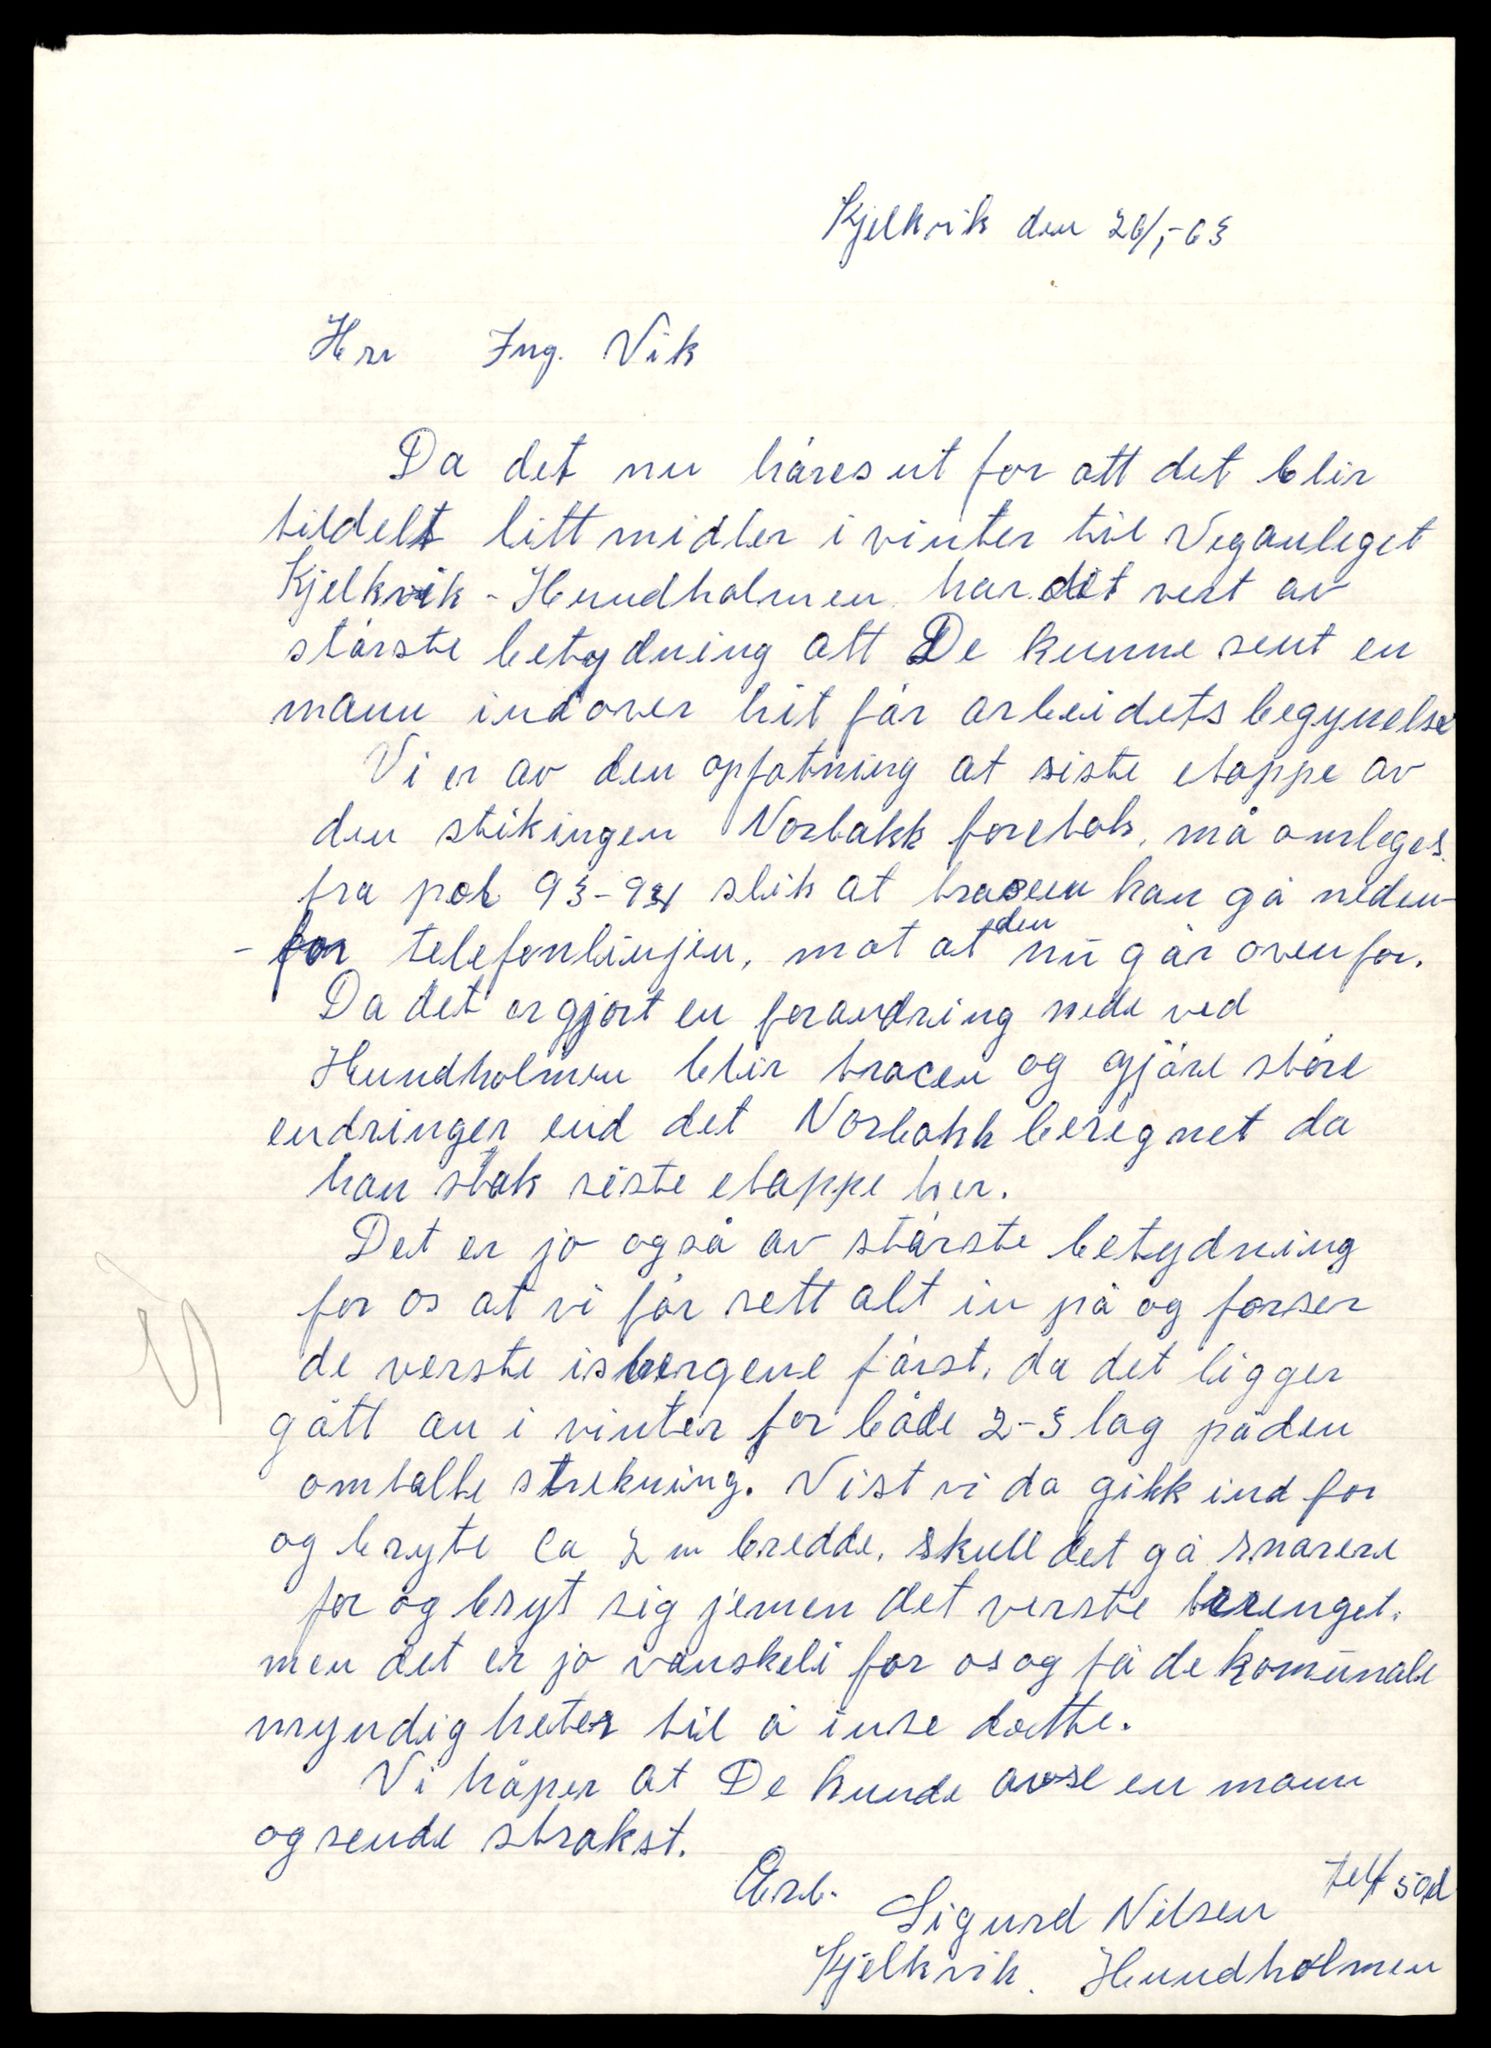 Kjelkvik den 26/1-63
Herr Ing. Vik
Da det nu høres ut for att det blir
tildelt litt midler i vinter til Veganleget
Kjelkvik - Hundholmen har det vert av
største betydning att De kunne sent en
mann indover hit før arbeidets begynelse
Vi er av den opfatning at siste etappe av
den stikingen Norbakk foretok, må omleges
fra pel 93-94 slik at traceen kan gå neden-
-for telefonlinjen, mot at den nu går ovenfor.
Da det er gjort en forandring nede ved
Hundholmen blir tracen og gjøre støre
endringer end det Norbakk beregnet da
han stak siste etappe her.
Det er jo også av største betydning
for os at vi får sett alt in på og forser
de verste isbergene først, da det ligger
gått an i vinter for både 2-3 lag på den
omtalte strekning. Vist vi da gikk ind for
og bryte ca 2 m bredde, skull det gå snarere
for og bryt sig jemen det verste terenget.
men det er jo vanskeli for os og få de komunale
myndigheter til å inse dette.
Vi håper at De kunde avse en mann
og sende strakst.
Erb.
Sigurd Nilsen telf 50d
Kjelkvik. Hundholmen